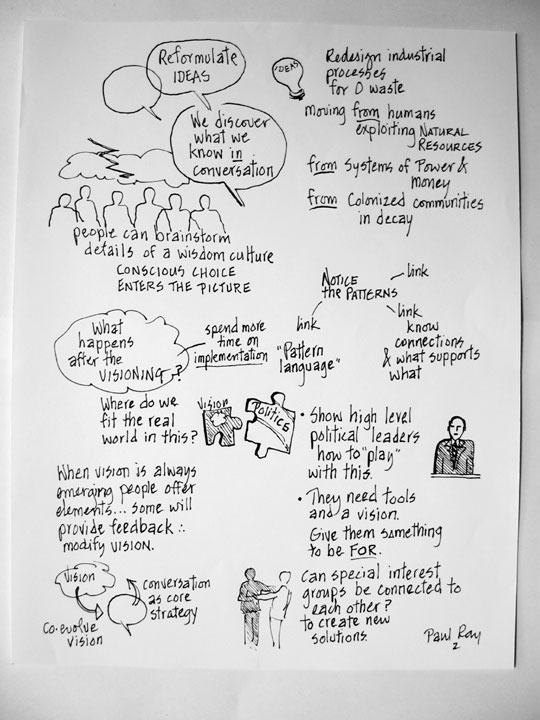 Reformulate
IDEAS
We discover
what we
know in
conversation
people can brainstorm
details of a wisdom culture
CONSCIOUS CHOICE
ENTERS THE PICTURE
IDEAS
Redesign industrial
processes
for O waste
moving from humans
exploiting NATURAL
RESOURCES
from Systems of Power &
Money
from Colonized communities
in decay
NOTICE
the PATTERNS
link
link
"Pattern
language"
link
know
connections
& what supports
what
What
happens
after the
VISIONING?
spend more
time on
implementation
Where do we
fit the real
world in this?
Vision
Politics
• Show high level
political leaders
how to "play"
with this.
• They need tools
and a vision.
Give them something
to be FOR.
When vision is always
emerging people offer
elements... some will
provide feedback ∴
modify VISION.
Vision
conversation
as core
strategy
Co-evolve
Vision
Can special interest
groups be connected to
each other?
to create new
solutions.
Paul Ray
2